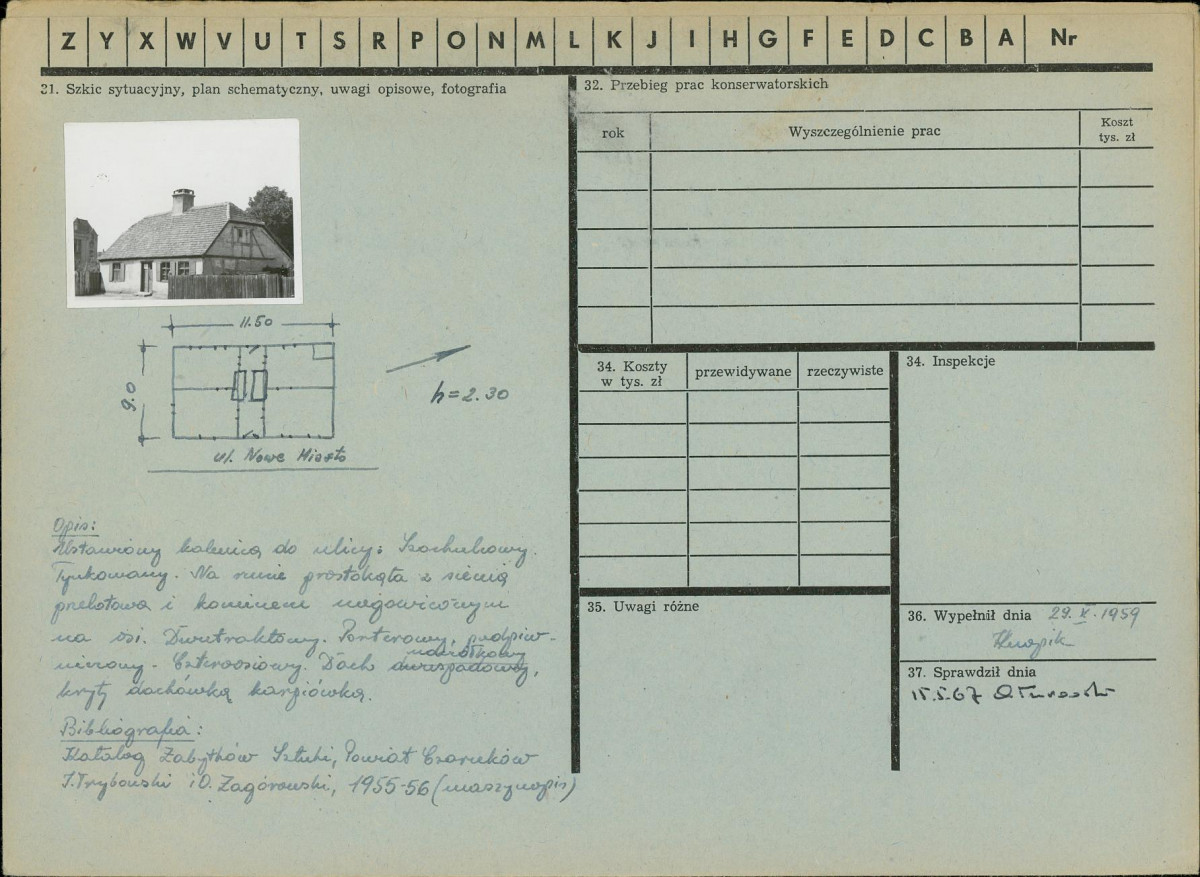 Z Y X W V U T S R P O N M L K J I H G F E D C B A Nr
31. Szkic sytuacyjny, plan schematyczny, uwagi opisowe, fotografia
11.50
9.0
h=2.30
ul. Nowe Miasto
Opis:
Ustawiony kalenicą do ulicy. Szachulcowy.
Tynkowany. Na rzucie prostokąta z sienią
przelotową i kominem
na osi. Dwutraktowy. Parterowy, podpiw-
niczony. Czteroosiowy. Dach naczółkowy dwuspadowy,
kryty dachówką karpiówką.
Bibliografia:
Katalog Zabytków Sztuki, Powiat Czarnków
T. Trybowski i O. Zagórowski, 1955-56 (maszynopis)
32. Przebieg prac konserwatorskich
rok
Wyszczególnienie prac
Koszt
tys. zł
34. Koszty
w tys. zł
przewidywane
rzeczywiste
34. Inspekcje
35. Uwagi różne
36. Wypełnił dnia 29. X. 1959
37. Sprawdził dnia
15.5.67